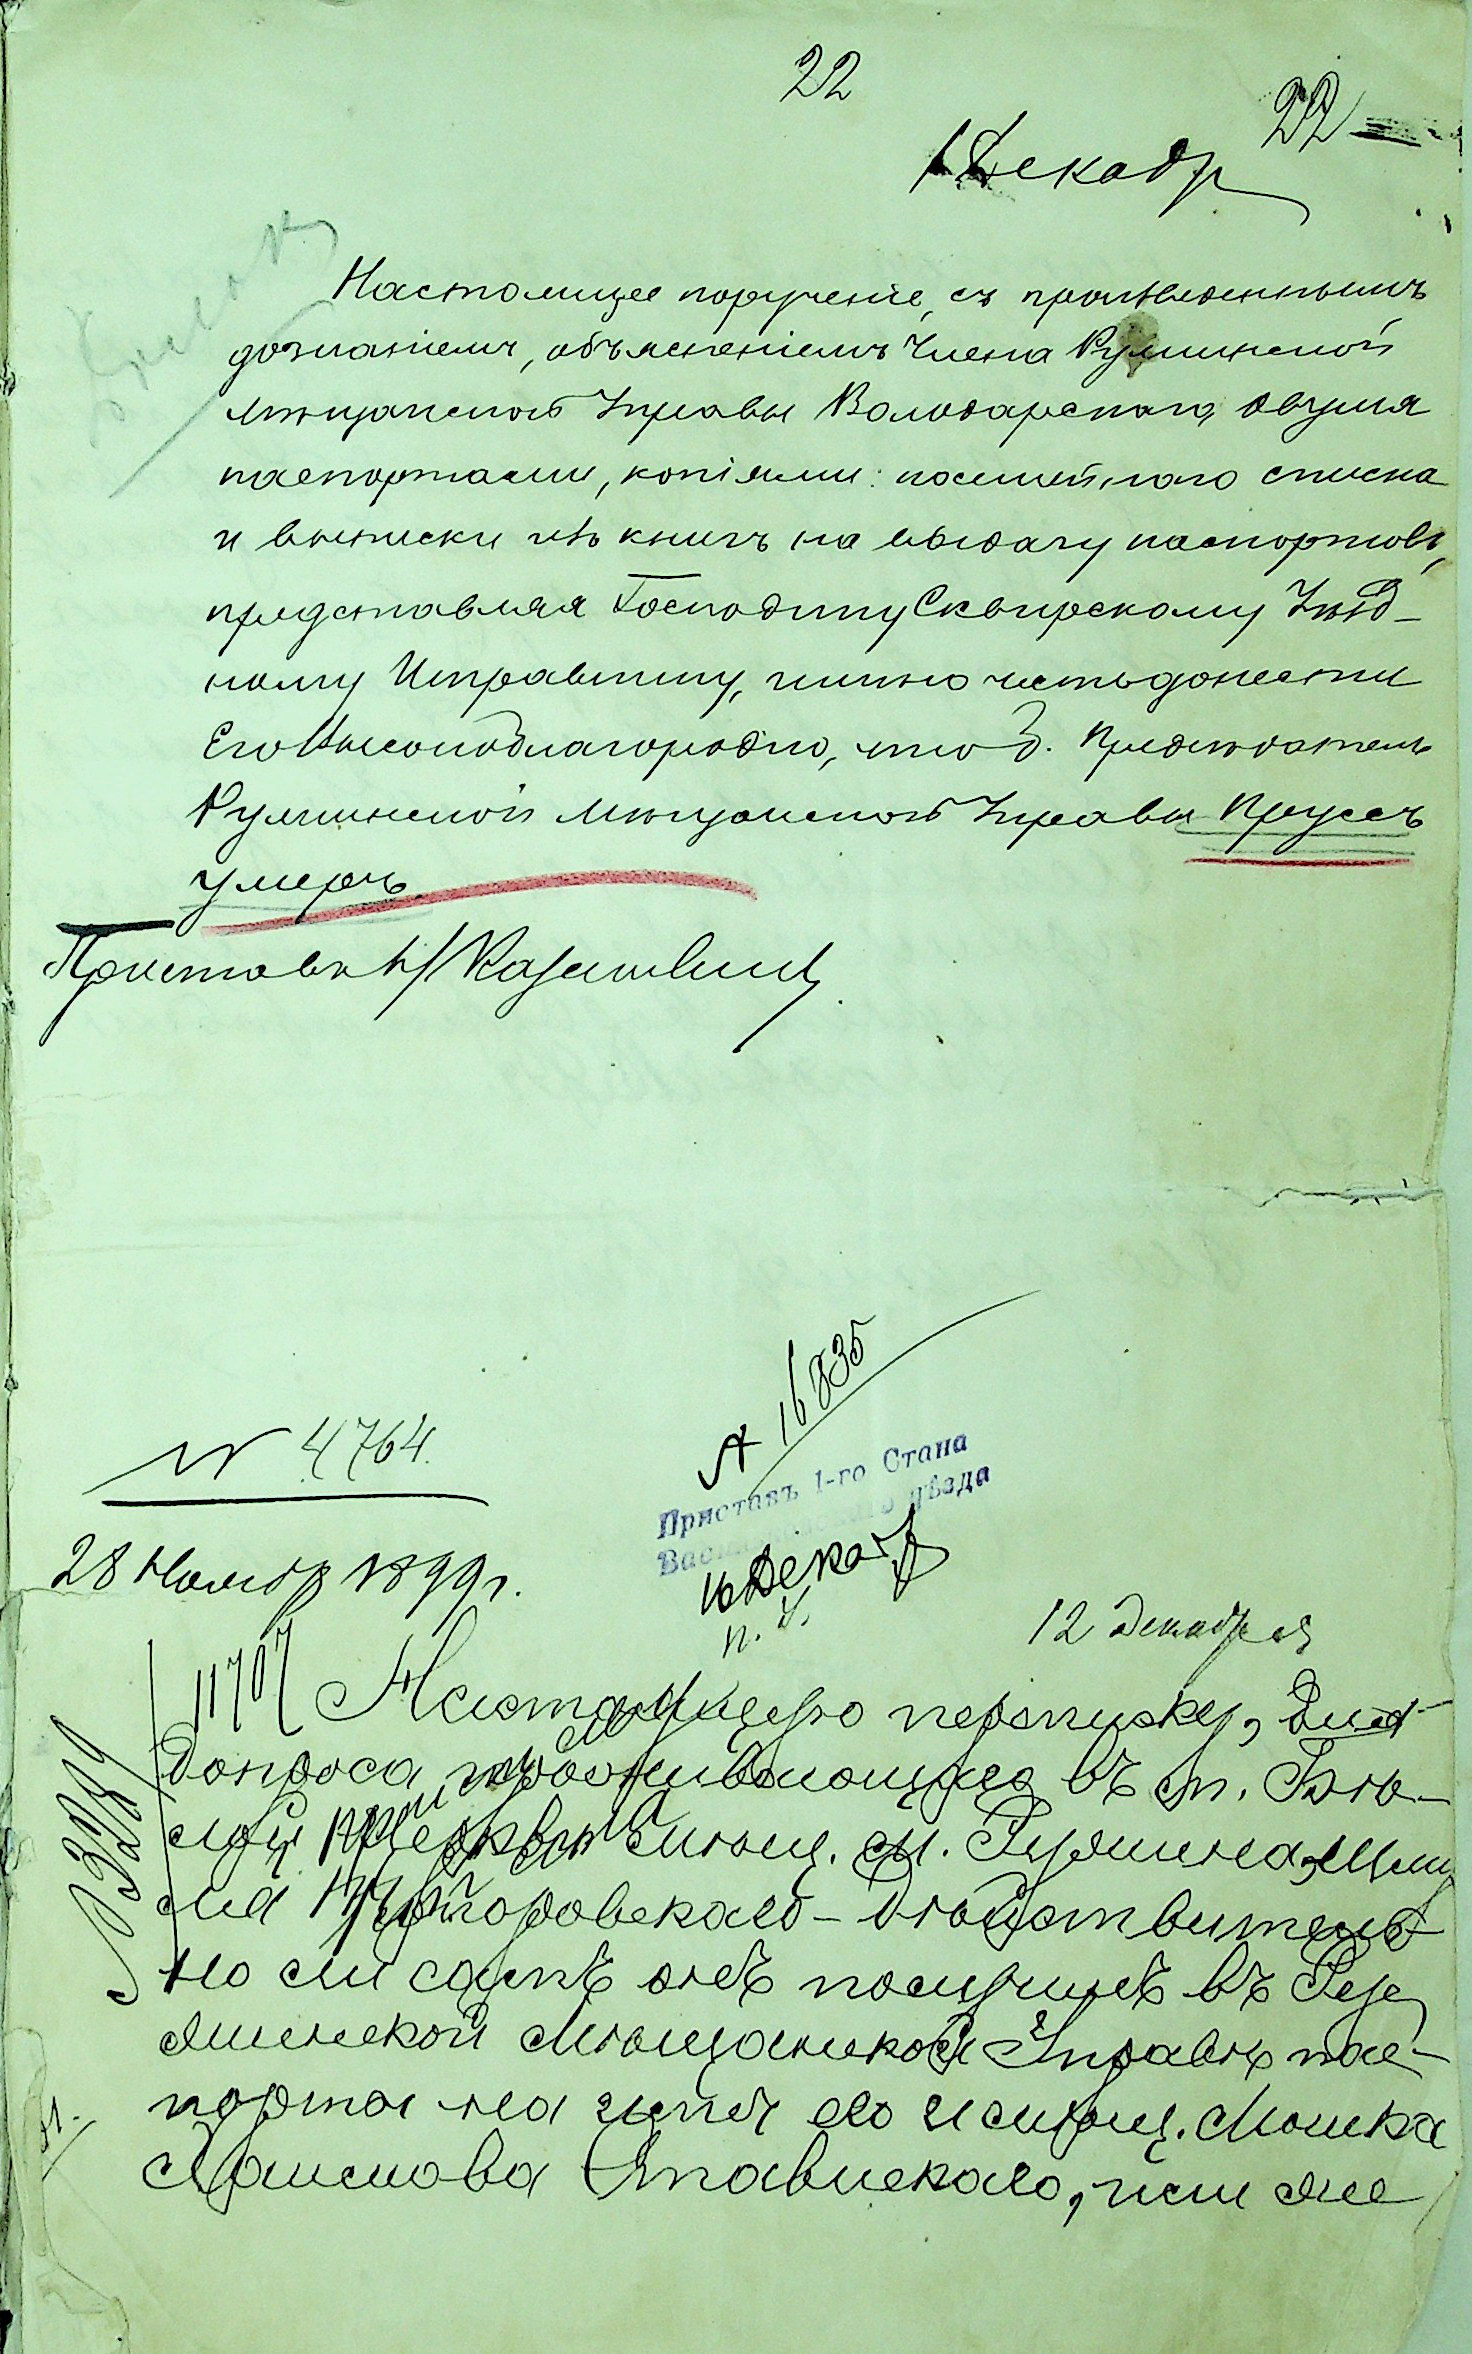 22
22
1 Декабр
Настоящее порученіе, съ произведеннымъ
дознаніемъ, объясненіемъ Члена Ружинской
мѣщанской Управы Володарскаго, двумя
паспортами, копіями: посемейнаго списка
и выписки изъ книгъ на выдачу паспортовъ,
представляя Господину Сквирскому Уѣзд-
ному Исправнику, имѣю честь донести
Его Высокоблагородію, что б. Предсѣдатель
Ружинской Мѣщанской Управы Прусъ
умеръ.
Приставъ
№ 4764.
16835
Приставъ 1-го Стана
уѣзда
28 Ноября 1899 г.
10 Декаб
п. у.
12 Декабря
11707
Настоящую переписку, для
допроса проживающаго въ м. Бѣ-
лой Церкви мѣщ. м. Ружина,
Действитель
но ли самъ онъ получилъ въ Ру
жинской Мѣщанской Управѣ пас-
порта на имя его и мѣщ. Мошка
или же